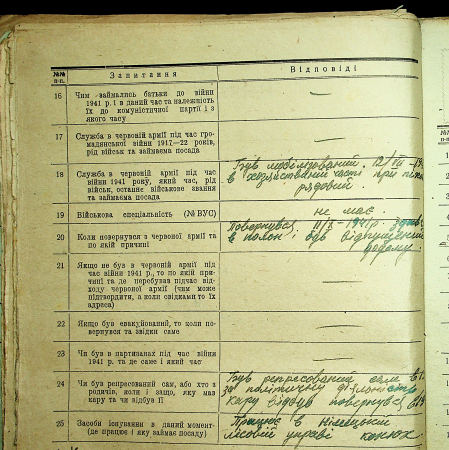 №№ п-п.
Запитання
Відповіді
16 Чим займались батьки до війни
1941 р. і в даний час та належність
їх до комуністичної партії і з
якого часу
—
17 Служба в червоній армії під час гро-
мадянської війни 1917—22 років,
рід військ та займаєма посада
—
18 Служба в червоній армії під час
війни 1941 року, який час, рід
військ, останнє військове звання
та займаєма посада
Був мобілізований 12/VII
в хозяйственій часті при
рядовий.
19 Військова спеціальність (№ ВУС)
не має.
20 Коли повернувся з червоної армії та
по якій причині
Повернувся II/X-1941 р.
в полон, був відпущений
додому.
21 Якщо не був в червоній армії під
час війни 1941 р., то по якій при-
чині та де перебував підчас від-
ходу червоної армії (чим може
підтвердити, а коли свідками то їх
адреса)
—
22 Якщо був евакуйований, то коли по-
вернувся та звідки саме
—
23 Чи був в партизанах під час війни
1941 р. та де саме і який час
—
24 Чи був репресований сам, або хто з
родичів, коли і защо, яку мав
кару та чи відбув її
Був репресований сам в
за політичну діяльність
кару відбув повернувся
25 Засоби існування в даний момент-
(де працює і яку займає посаду)
Працює в Німецькій
лісовій управі конюх